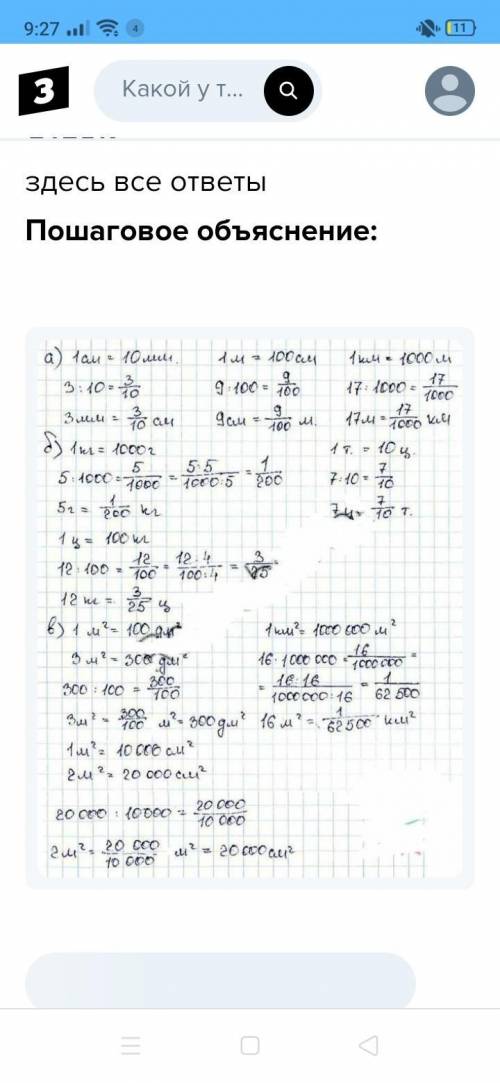 9:27 4 11
З Какой у т...
здесь все ответы
Пошаговое объяснение:
а) 1см = 10мм. 1м = 100см 1км = 1000м
3:10 = 3/10 9:100 = 9/100 17:1000 = 17/1000
3мм = 3/10 см 9см = 9/100 м. 17м = 17/1000 км
б) 1кг = 1000г 1т. = 10ц.
5:1000 = 5/1000 = 5:5/1000:5 = 1/200 7:10 = 7/10
5г = 1/200 кг 7ц = 7/10 т.
1ц = 100кг
12:100 = 12/100 = 12:4/100:4 = 3/25
12кг = 3/25 ц
в) 1м² = 100дм² 1км² = 1000000м²
3м² = 300дм² 16:1000000 = 16/1000000 =
300:100 = 300/100 = 16:16/1000000:16 = 1/62500
3м² = 300/100 м² = 300дм² 16м² = 1/62500 км²
1м² = 10000см²
2м² = 20000см²
20000:10000 = 20000/10000
2м² = 20000/10000 м² = 20000см²